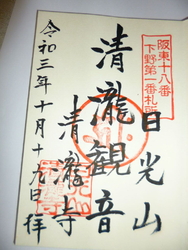 阪東十八番
下野第一番札所
日光山
清瀧観音
清瀧寺
令和三年十月十九日拝